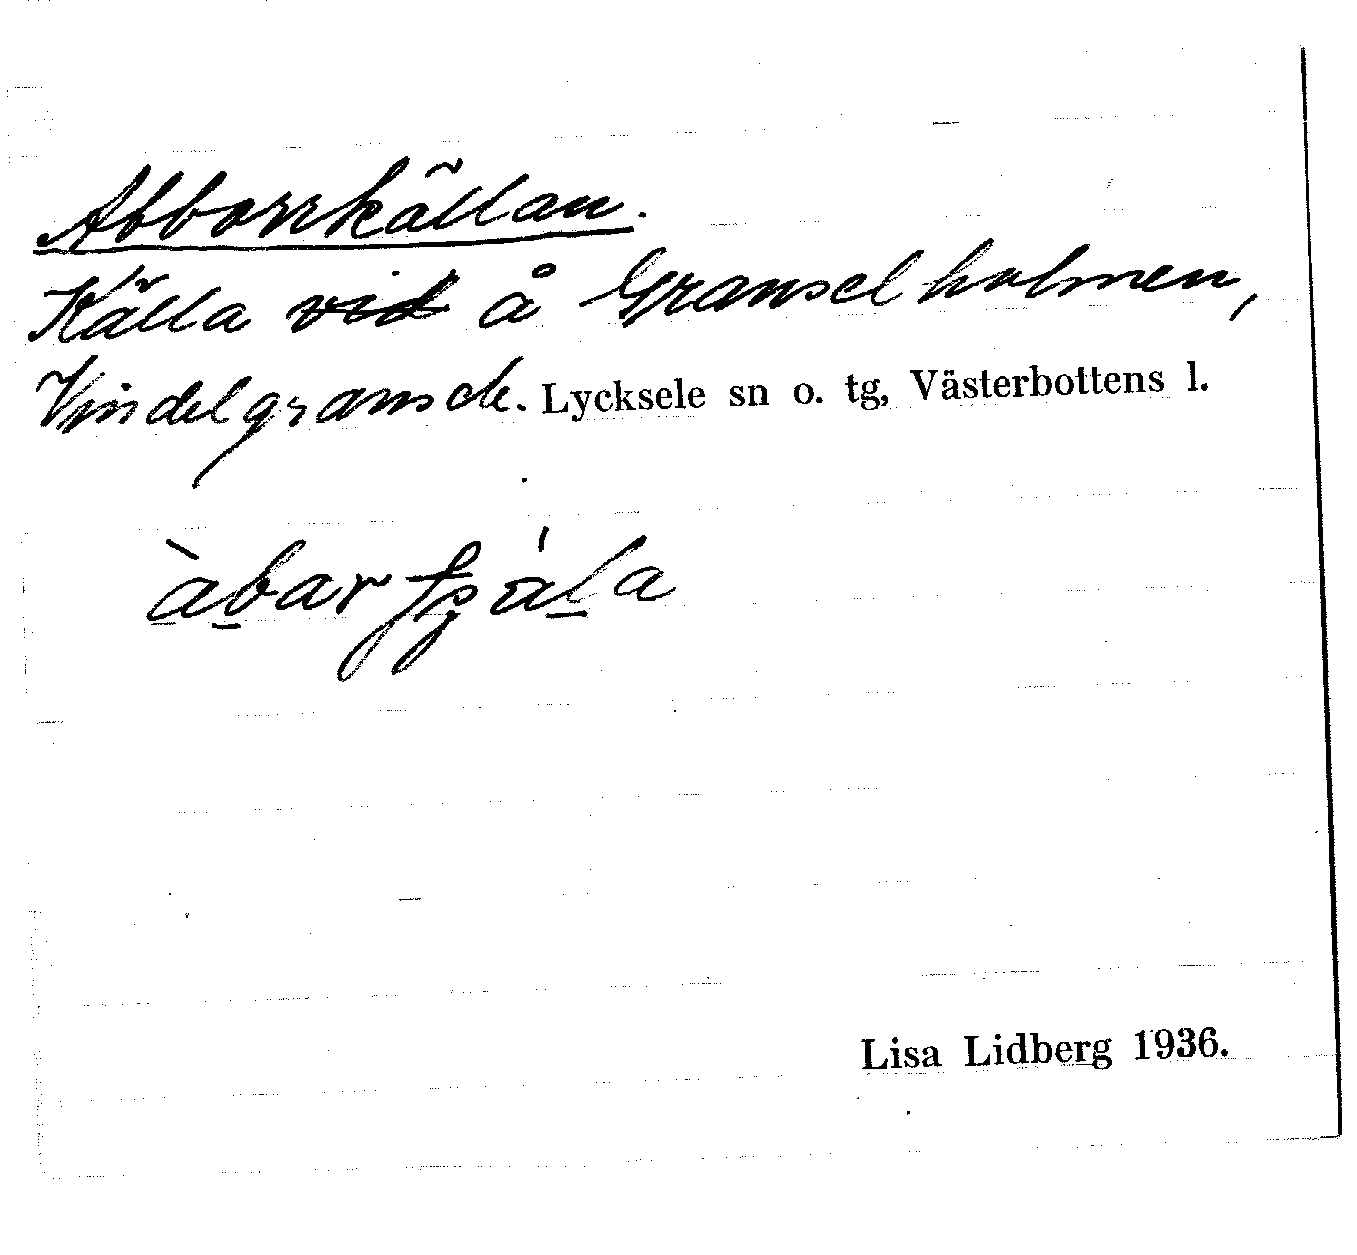 Abborrkällan.
Källa å Granselholmen,
Vindelgransele. Lycksele sn o. tg, Västerbottens l.
Lisa Lidberg 1936.